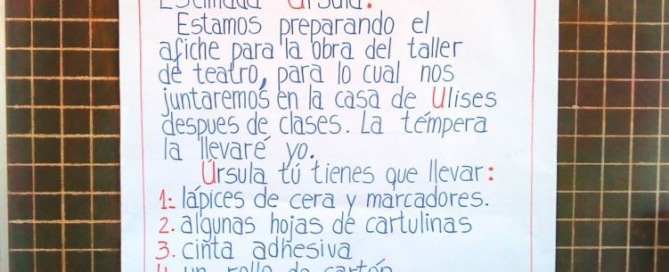 Estimada Úrsula:
Estamos preparando el
afiche para la obra del taller
de teatro, para lo cual nos
juntaremos en la casa de Ulises
despues de clases. La témpera
la llevaré yo.
Úrsula tú tienes que llevar:
1. lápices de cera y marcadores.
2. algunas hojas de cartulinas
3. cinta adhesiva
4. un rollo de cartón